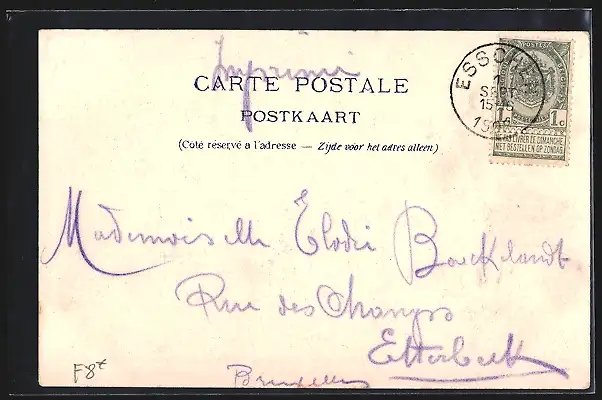 Imprimé
CARTE POSTALE
POSTKAART
(Côté réservé a l'adresse — Zijde voor het adres alleen)
ESSCHEN
1
SEPT
15-16
POSTES
1c 1c
NE PAS LIVRER LE DIMANCHE
NIET BESTELLEN OP ZONDAG
Mademoiselle Elodie Boecklandt
Rue des Champs
Etterbeek
Bruxelles
F8